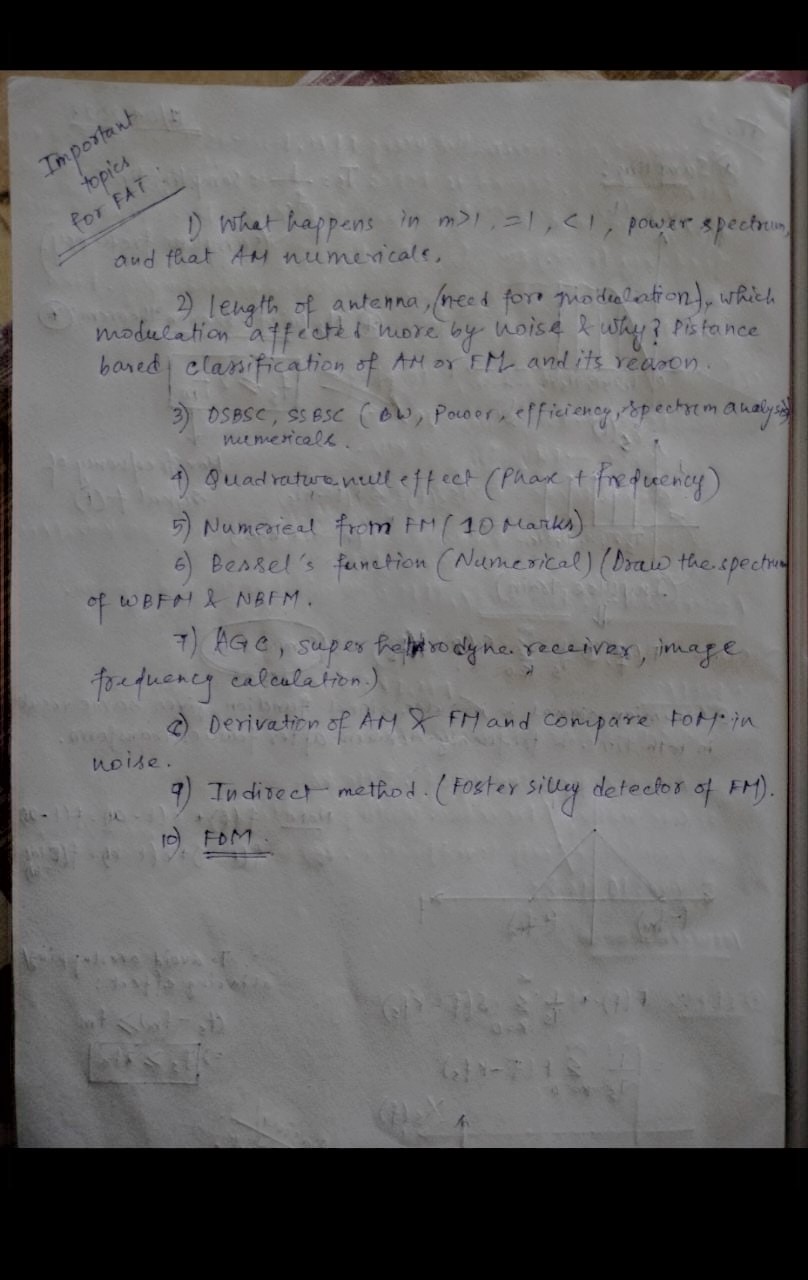 Important
topics
for FAT.
1) What happens in m>1, =1, <1, power spectrum,
and that AM numericals.
2) length of antenna, (need for modulation), which
modulation affected more by noise & why? Distance
based classification of AM or FM and its reason.
3) DSBSC, SSBSC (BW, Power, efficiency, spectrum analysis)
numericals.
4) Quadrature null effect (Phase + frequency)
5) Numerical from FM (10 Marks)
6) Bessel's function (Numerical) (Draw the spectrum
of WBFM & NBFM.
7) AGC, super hetrodyne receiver, image
frequency calculation.)
8) Derivation of AM & FM and compare FOM in
noise.
9) Indirect method. (Foster silley detector of FM).
10) FDM.